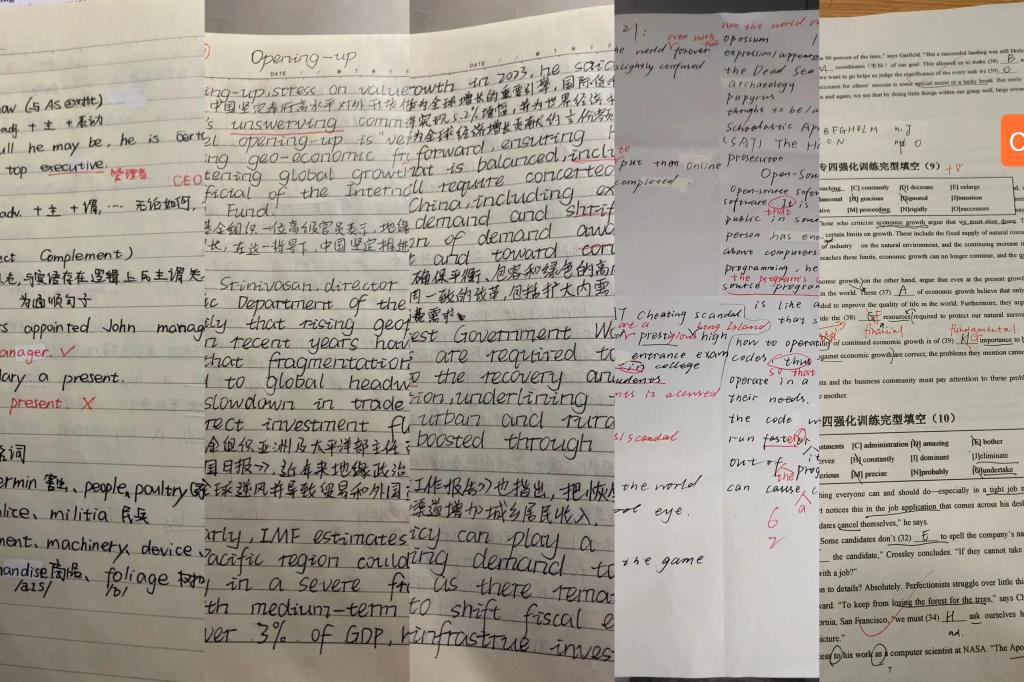 adj. + 主 + 表动
ll he may be, he is certa
top executive.
管理者 CEO
adv. + 主 + 谓, … 无论如何,
ect Complement)
为通顺句子
rs appointed John manag
anager. ✓
ary a present.
present. X
ermin 害虫, people, poultry
lice, militia 民兵
ment, machinery, device
andise 商品, foliage
/aɪs/
Opening-up
DATE
ing-up, stress on value
中国坚定奉行高水平对外开放
s unswerving comm
l opening-up is "ve
ing geo-economic fr
tening global growth
ficial of the Intern
Fund.
金组织一位高级官员表示, 地缘
长, 在这一背景下, 中国坚定推进
Srinivasan, director
ic Department of the
ily that rising geop
n recent years how
that fragmentation
l to global headw
slowdown in trade
rect investment fl
金组织亚洲及太平洋部主任
国日报》, 近年来地缘政治
球逆风并导致贸易和外国
arly, IMF estimates
acific region could
in a severe fr
th medium-term
ver 3% of GDP,
DATE
owth in 2023, he said
作为全球增长的重要引擎, 国际货币
实现5.2%增幅, 并为世界经济
为全球经济增长贡献约三分
forward, ensuring
at is balanced, inclu
ll require concerted
China, including ex
demand and shift
n of demand awa
t and toward con
确保平衡、包容和绿色的高
用一致的改革, 包括扩大内需
est Government Wo
s are required to
o the recovery an
ion, underlining
urban and rura
boosted through
工作报告》也指出, 把恢
渠道增加城乡居民收入.
icy can play a
ing demand to
as there rema
to shift fiscal e
infrastrue inves
21:
over with her
he world forever
slightly confused
to
put them online
completed.
IT cheating scandal
at a Long Island
prestigious high
in college
entrance exam
udents
nts is accused
scandal
the world
ool eye.
the game
won the world ov
opossum
expression/appeara
the Dead Sea
archaeology
papyrus
thought to be la
Scholastic Ap
(SAT) The Hi
prosecutor
Open-sour
open-source softw
software. It is
that
public in sour
person has eno
about computers
programming, he
the program's s
source program
is like a
that s
how to operat
codes, thus
so that
operate in a
their needs.
the code m
run faster
out of it
the prog
can cause
a
6
2
n 90 percent of the time," says Garfield. "But a successful landing was still likely
coordinates (坐标) of our goal. This allowed us to make (38) B
we want to go helps us judge the significance of the every task we (39) O
accounts for others' success is some special secret or a lucky break. But rarely
n and again, we see that by doing little things within our grasp well, large rewar
B F G H E L M n. J
C. N
专四强化训练完型填空（9） +8
oaching [C] constantly [D] decrease [E] enlarge
lamental [H] gracious [I] ignored [J] intention
tive [M] proceeding [N] rigidly [O] successors
hose who criticize economic growth argue that we must slow down.
certain limits on growth. These include the fixed supply of natural resourc
of industry on the natural environment, and the continuing increase in
reaches these limits, economic growth can no longer continue, and the qu
nomic growth on the other hand, argue that even at the present growth
n the world. These (37) A of economic growth believe that only
ded to improve the quality of life in the world. Furthermore, they arg
ide the (38) resources required to protect our natural surrou
financial fundamental
of continued economic growth is of (39) importance to
against economic growth are correct, the problems they mention cannot
ts and the business community must pay attention to these prob
o another.
四强化训练完型填空（10）
stments [C] administration [D] amazing [E] bother
rves [H] constantly [I] dominant [J] eliminate
erious [M] precise [N] probably [O] undertake
hing everyone can and should do—especially in a tight job m
t notices this in the job application that comes across his desk
dates cancel themselves," he says.
Some candidates don't (32) E to spell the company's na
the candidate," Crossley concludes. "If they cannot take
with a job?"
n to details? Absolutely. Perfectionists struggle over little thi
ward. "To keep from losing the forest for the trees," says Ch
ornia, San Francisco, "we must (34) H ask ourselves h
ad.
icture."
cess to his work as a computer scientist at NASA. "The Apo
7